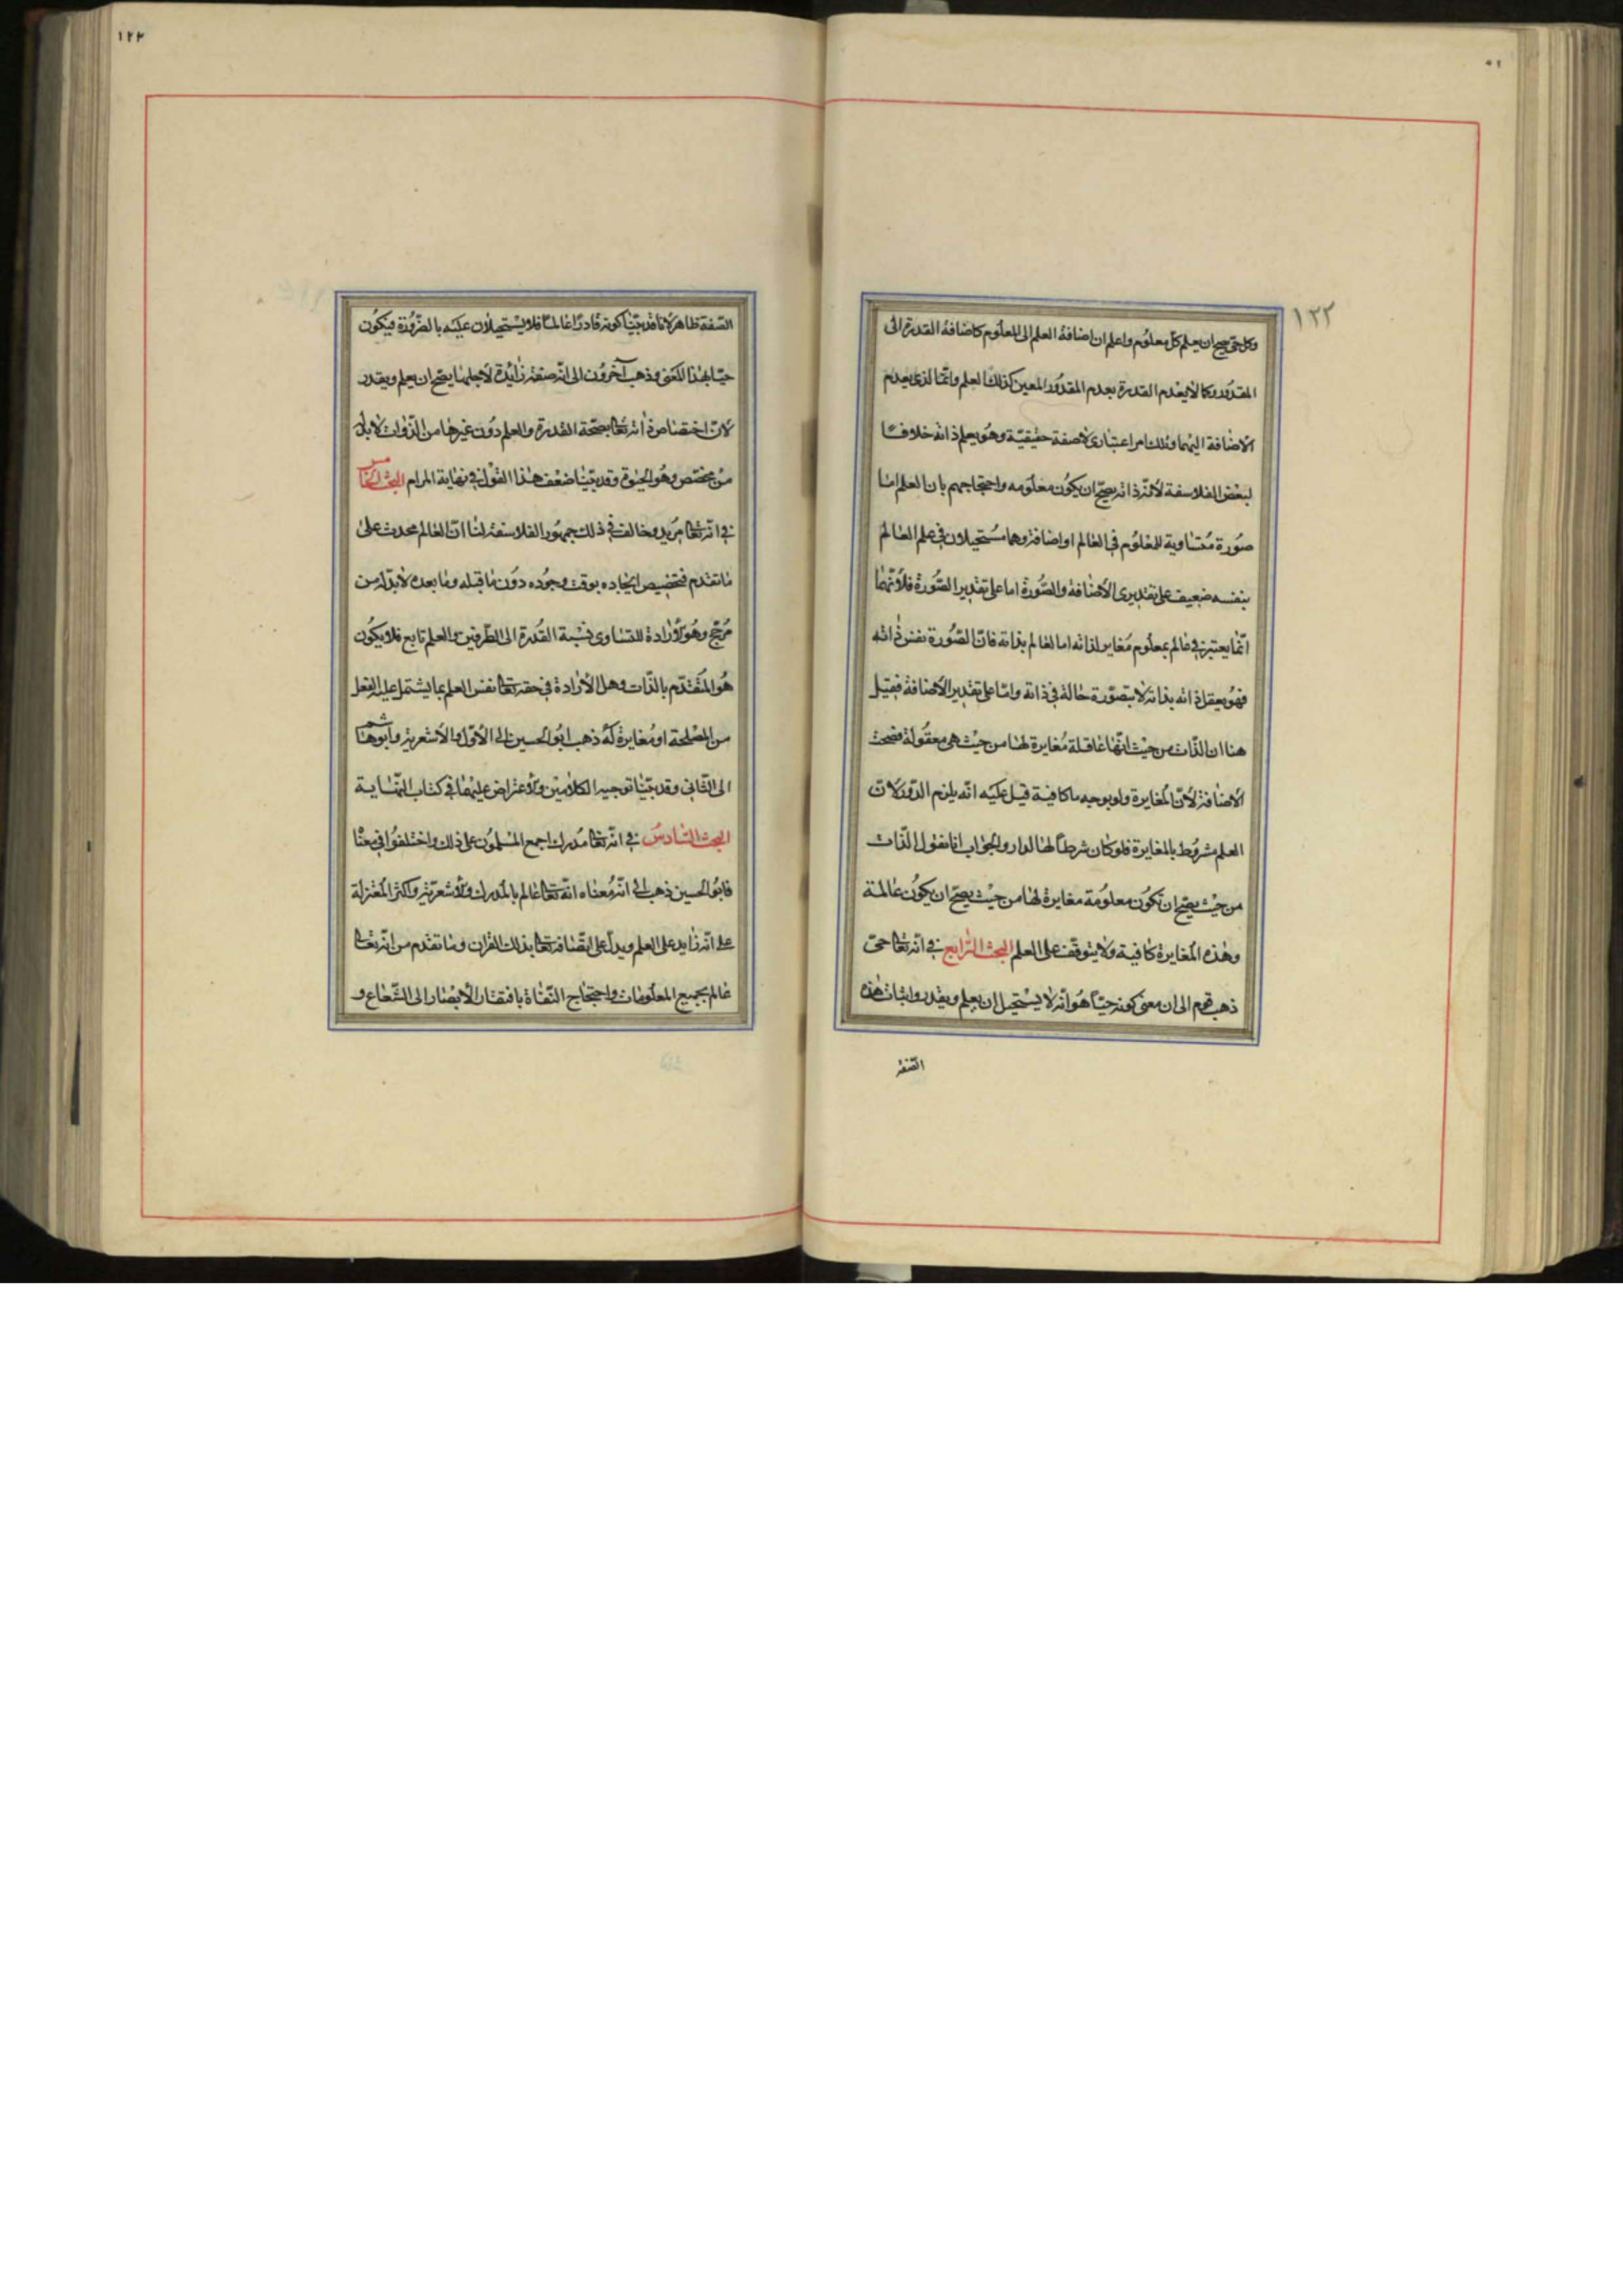 ١٢٢
وكل حى يصح ان يعلم كل معلوم واعلم ان اضافة العلم الى المعلوم كاضافة القدرة الى
المقدور وكما لا يعدم القدرة بعدم المقدور المعين كذلك العلم وانما الذى يعدم
الاضافة اليهما وتلك امر اعتبارى لا صفة حقيقية وهو يعلم ذاته خلافا
لبعض الفلاسفة لانّ ذاته يصح ان يكون معلومه واحتجاجهم بان العلم اما
صورة متساوية للمعلوم فى العالم او اضافة وهما مستحيلان فى علم العالم
بنفسه ضعيف على تقديرى الاضافة والصورة اما على تقدير الصورة فلانها
انما يعتبر فى عالم بمعلوم مغاير لذاته اما العالم بذاته فان الصورة نفس ذاته
فهو يعقل ذاته بذاته لا بتصورة حالة فى ذاته واما على تقدير الاضافة فقيل
هنا ان الذات من حيث انها عاقلة مغايرة لها من حيث هى معقولة فصحت
الاضافة لان المغايرة ولو بوجه ما كافية قيل عليه انه يلزم الدور لان
العلم مشروط بالمغايرة فلو كان شرطا لها لدار والجواب انا نقول الذات
من حيث يصح ان تكون معلومة مغايرة لها من حيث يصح ان يكون عالمة
وهذه المغايرة كافية ولا يتوقف على العلم البحث الرابع فى انه تعالى حى
ذهب قوم الى ان معنى كونه حيا هو انه لا يستحيل ان يعلم ويقدر واثبات هذه
الصفة
١٢٢
الصفة ظاهر لانا قد بينا كونه قادرا عالما فلا يستحيلان عليه بالضرورة فيكون
حيا بهذا المعنى وذهب آخرون الى انه صفة زايدة لاجلها يصح ان يعلم ويقدر
لان اختصاص ذاته تعالى بصحة القدرة والعلم دون غيرها من الذوات لا بد له
من مخصص وهو الحيوة وقد بينا ضعف هذا القول فى نهاية المرام البحث الخامس
فى انه تعالى مريد وخالف فى ذلك جمهور الفلاسفة لنا ان العالم محدث على
ما تقدم فتخصيص ايجاده بوقت وجوده دون ما قبله وما بعده لا بد له من
مرجح وهو الارادة لتساوى نسبة القدرة الى الطرفين والعلم تابع فلا يكون
هو المتقدم بالذات وهل الارادة فى حقه تعالى نفس العلم بما يشتمل عليه الفعل
من المصلحة او مغايرة له ذهب ابو الحسين الى الاول والاشعرية وابو هاشم
الى الثانى وقد بينا توجيه الكلامين والاعتراض عليهما فى كتاب النهاية
البحث السادس فى انه تعالى مدرك اجمع المسلمون على ذلك واختلفوا فى معناه
فابو الحسين ذهب الى انه معناه انه تعالى عالم بالمدرك والاشعرية واكثر المعتزلة
على انه زايد على العلم ويدل على اتصافه تعالى بذلك القران وما تقدم من انه تعالى
عالم بجميع المعلومات واحتجاج النفاة بافتقار الابصار الى الشعاع و